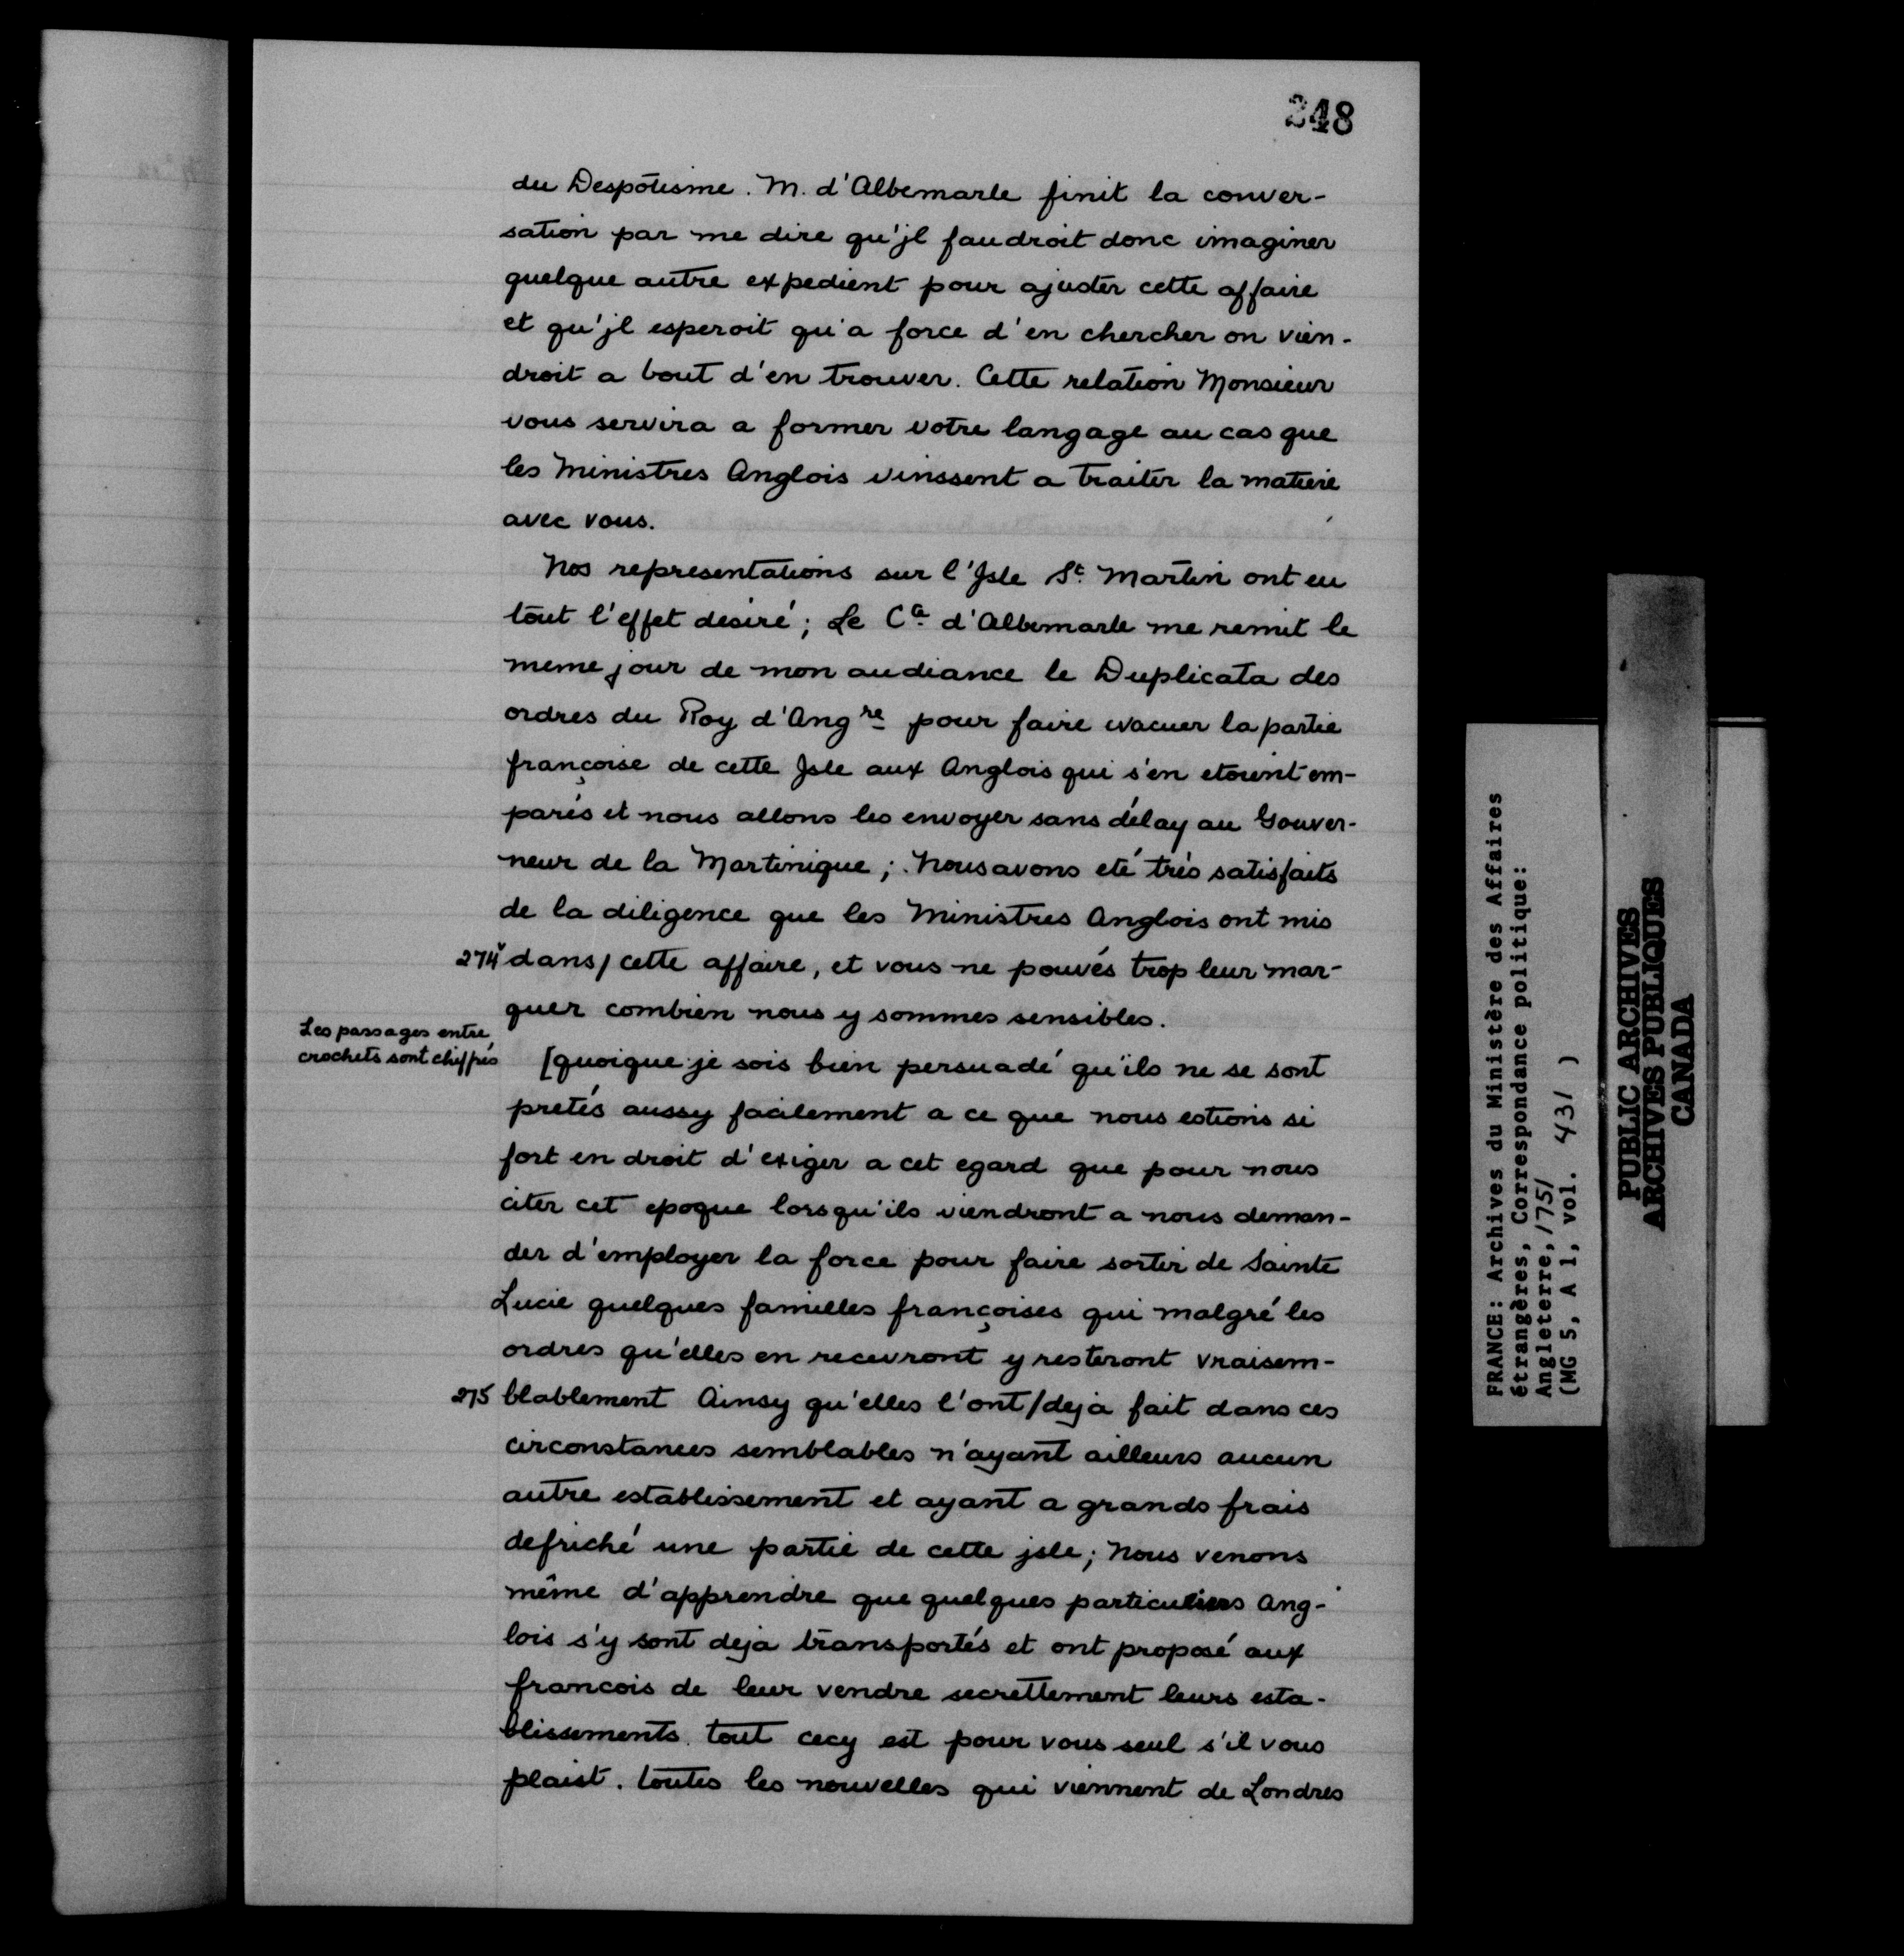 248
du Despotisme. M. d'Albemarle finit la conver-
sation par me dire qu'jl faudroit donc imaginer
quelque autre expedient pour ajuster cette affaire
et qu'jl esperoit qu'a force d'en chercher on vien-
droit a bout d'en trouver. Cette relation Monsieur
vous servira a former votre langage au cas que
les Ministres Anglois vinssent a traiter la matiere
avec vous.
Nos representations sur l'Jsle St. Martin ont eu
tout l'effet desiré; Le Cte. d'Albemarle me remit le
meme jour de mon audiance le Duplicata des
ordres du Roy d'Angre pour faire evacuer la partie
françoise de cette Jsle aux Anglois qui s'en etoient em-
parés et nous allons les envoyer sans délay au Gouver-
neur de la Martinique; Nous avons eté très satisfaits
de la diligence que les Ministres Anglois ont mis
274v dans/ cette affaire, et vous ne pouvés trop leur mar-
quer combien nous y sommes sensibles.
Les passages entre
crochets sont chiffrés
[quoique je sois bien persuadé qu'ils ne se sont
pretés aussy facilement a ce que nous estions si
fort en droit d'exiger a cet egard que pour nous
citer cet epoque lorsqu'ils viendront a nous deman-
der d'employer la force pour faire sortir de Sainte
Lucie quelques familles françoises qui malgré les
ordres qu'elles en recevront y resteront vraisem-
275 blablement Ainsy qu'elles l'ont/deja fait dans ces
circonstances semblables n'ayant ailleurs aucun
autre establissement et ayant a grands frais
defriché une partie de cette jsle; Nous venons
même d'apprendre que quelques particuliers Ang-
lois s'y sont deja transportés et ont proposé aux
francois de leur vendre secrettement leurs esta-
blissements. tout cecy est pour vous seul s'il vous
plaist. toutes les nouvelles qui viennent de Londres
FRANCE: Archives du Ministère des Affaires
étrangères, Correspondance politique:
Angleterre, 1751
(MG 5, A 1, vol. 431 )
PUBLIC ARCHIVES
ARCHIVES PUBLIQUES
CANADA